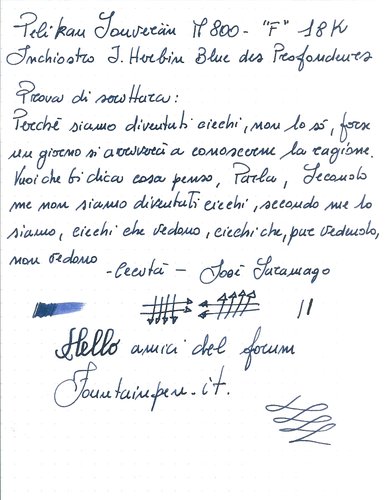 Pelikan Souverän M 800 - "F" 18K
Inchiostro J. Herbin Blue des Profondeurs
Prova di scrittura:
Perché siamo diventati ciechi, non lo só, forse
un giorno si arriverà a conoscerne la ragione.
Vuoi che ti dica cosa penso, Parla, Secondo
me non siamo diventati ciechi, secondo me lo
siamo, ciechi che vedono, ciechi che, pur vedendo,
non vedono
-Cecità - José Saramago
Hello amici del forum
Fountainpen.it.